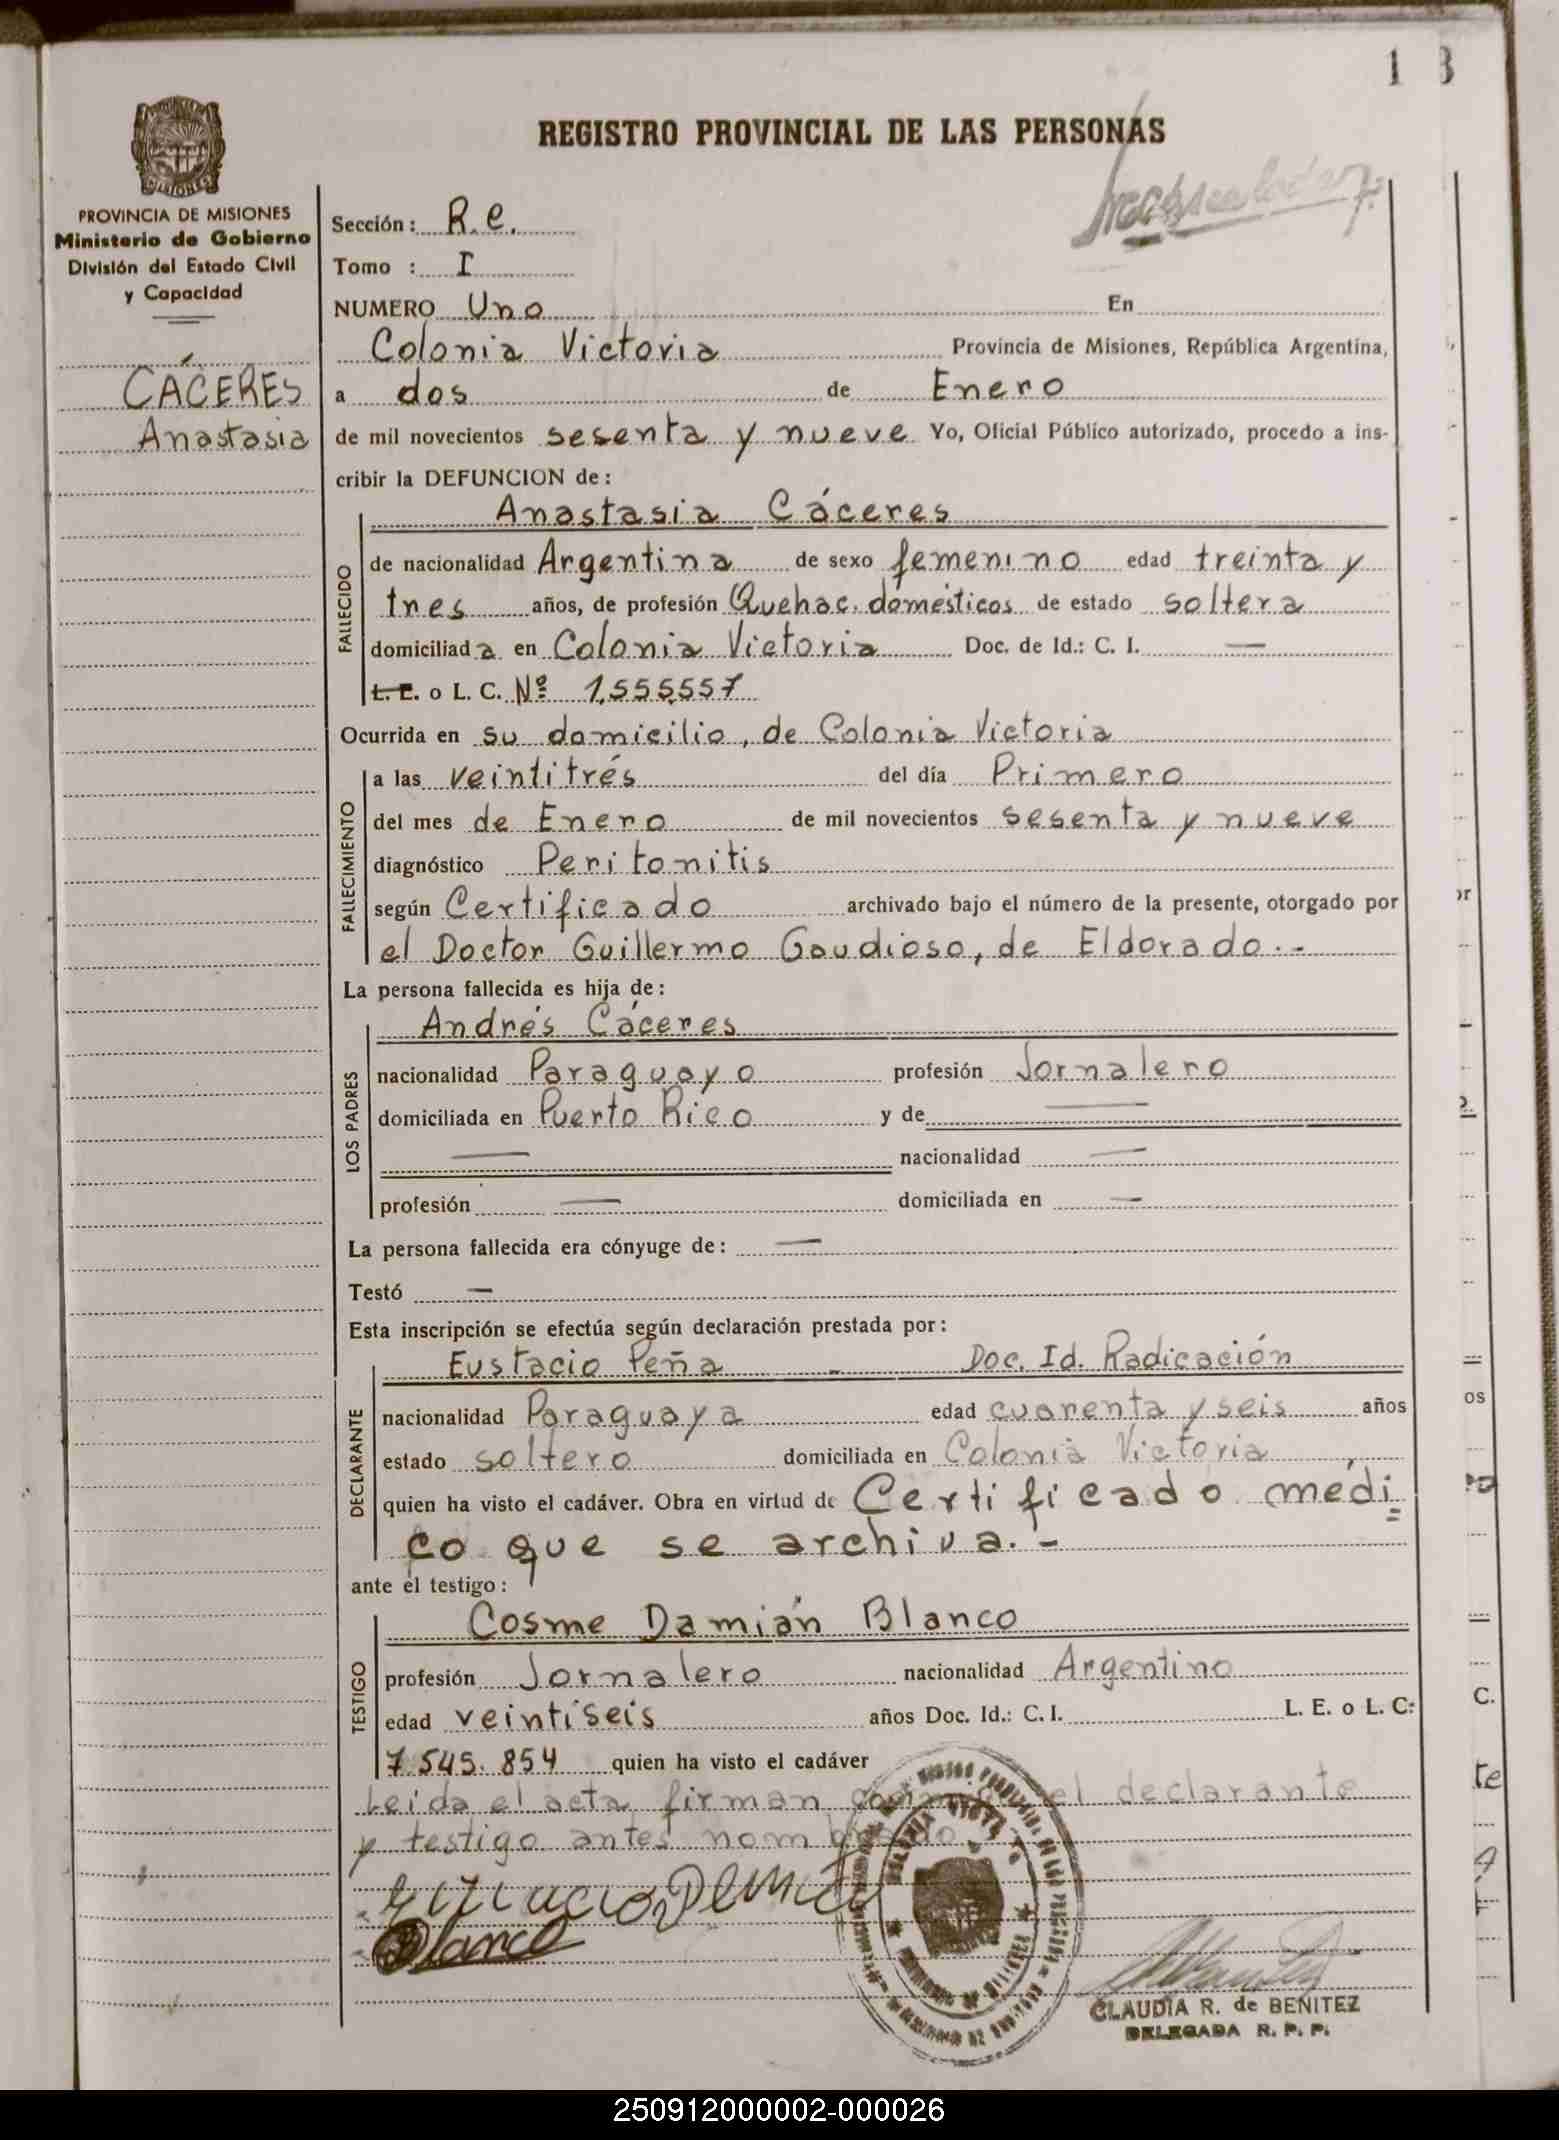 1 3
REGISTRO PROVINCIAL DE LAS PERSONAS
PROVINCIA DE MISIONES
Ministerio de Gobierno
División del Estado Civil
y Capacidad
CÁCERES
Anastasia
Sección: R.C.
Tomo : I
NUMERO Uno En
Colonia Victoria Provincia de Misiones, República Argentina,
a dos de Enero
de mil novecientos sesenta y nueve Yo, Oficial Público autorizado, procedo a ins-
cribir la DEFUNCION de:
Anastasia Cáceres
FALLECIDO
de nacionalidad Argentina de sexo femenino edad treinta y
tres años, de profesión Quehac. domésticos de estado soltera
domiciliada en Colonia Victoria Doc. de Id.: C. I. —
L. E. o L. C. Nº 1.555.557
Ocurrida en su domicilio, de Colonia Victoria
FALLECIMIENTO
a las veintitrés del día Primero
del mes de Enero de mil novecientos sesenta y nueve
diagnóstico Peritonitis
según Certificado archivado bajo el número de la presente, otorgado por
el Doctor Guillermo Gaudioso, de Eldorado.-
La persona fallecida es hija de:
LOS PADRES
Andrés Cáceres
nacionalidad Paraguayo profesión Jornalero
domiciliada en Puerto Rico y de —
— nacionalidad —
profesión — domiciliada en —
La persona fallecida era cónyuge de: —
Testó —
Esta inscripción se efectúa según declaración prestada por:
DECLARANTE
Eustacio Peña - Doc. Id. Radicación
nacionalidad Paraguaya edad cuarenta y seis años
estado soltero domiciliada en Colonia Victoria
quien ha visto el cadáver. Obra en virtud de Certificado médi=
co que se archiva.-
ante el testigo:
TESTIGO
Cosme Damián Blanco
profesión Jornalero nacionalidad Argentino
edad veintiseis años Doc. Id.: C. I. L. E. o L. C:
7.545.854 quien ha visto el cadáver
Leida el acta, firman el declarante
y testigo antes nombrado
Blanco
CLAUDIA R. de BENITEZ
DELEGADA R. P. P.
250912000002-000026